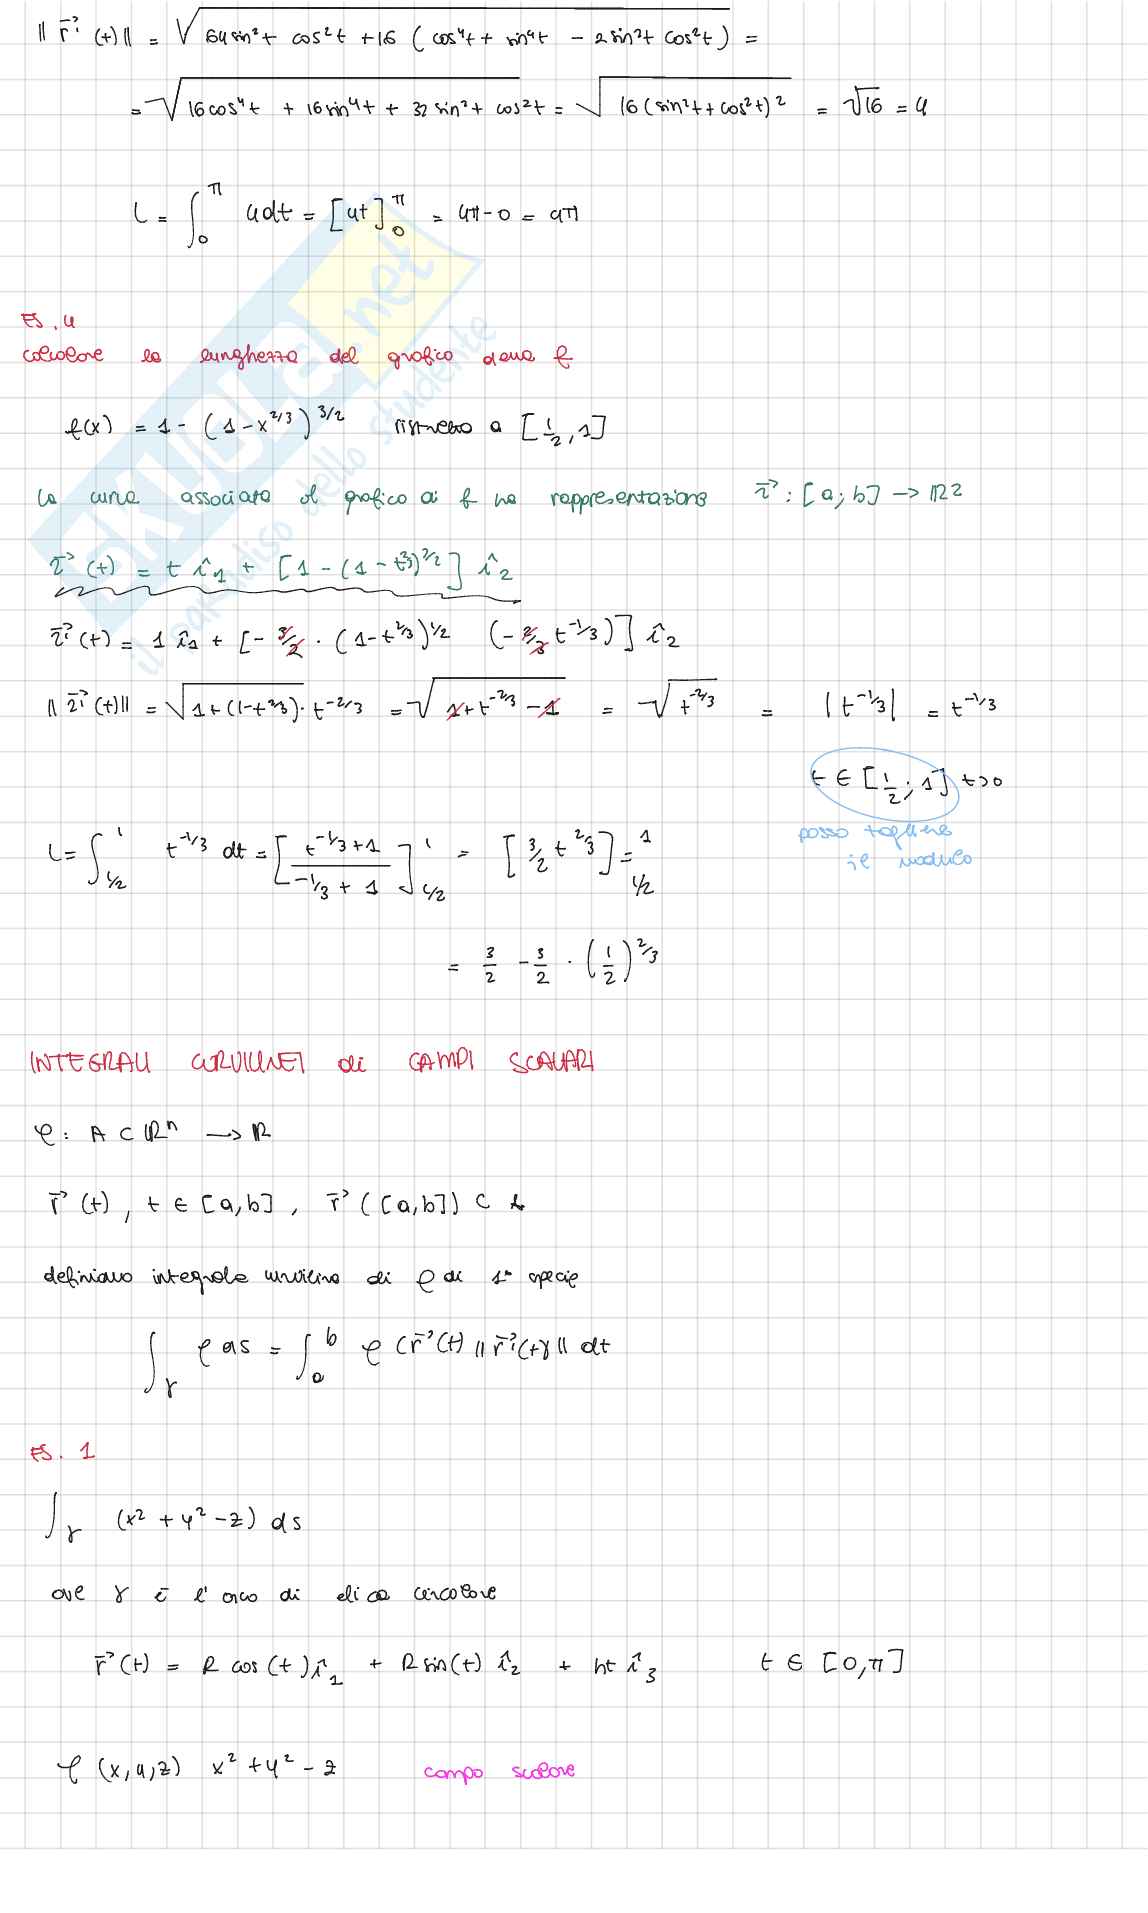 ‖r⃗'(t)‖ = √(64 sin²t cos²t + 16 (cos⁴t + sin⁴t - 2 sin²t cos²t)) =
= √(16cos⁴t + 16sin⁴t + 32 sin²t cos²t) = √(16(sin²t + cos²t)²) = √16 = 4
L = ∫₀^π 4dt = [4t]₀^π = 4π - 0 = 4π
ES. 4
calcolare la lunghezza del grafico della f
f(x) = 1 - (1 - x^{2/3})^{3/2} ristretto a [1/2, 1]
la curva associata al grafico di f ha rappresentazione r⃗ : [a; b] → R2
r⃗(t) = t î₁ + [1 - (1 - t^{2/3})^{3/2}] î₂
r⃗'(t) = 1 î₁ + [- 3/2 · (1 - t^{2/3})^{1/2} (- 2/3 t^{-1/3})] î₂
‖r⃗'(t)‖ = √(1 + (1 - t^{2/3}) · t^{-2/3}) = √(1 + t^{-2/3} - 1) = √(t^{-2/3}) = |t^{-1/3}| = t^{-1/3}
t ∈ [1/2; 1] t>0
posso togliere
il modulo
L = ∫_{1/2}^1 t^{-1/3} dt = [t^{-1/3 + 1} / (-1/3 + 1)]_{1/2}^1 = [3/2 t^{2/3}]_{1/2}^1 =
= 3/2 - 3/2 · (1/2)^{2/3}
INTEGRALI CURVILINEI di CAMPI SCALARI
φ : A ⊂ ℝⁿ → ℝ
r⃗(t), t ∈ [a,b], r⃗([a,b]) ⊂ A
definiamo integrale curvilineo di φ di 1ª specie
∫_γ φ ds = ∫_a^b φ(r⃗(t) ‖r⃗'(t)‖ dt
ES. 1
∫_γ (x² + y² - z) ds
ove γ è l'arco di elica circolare
r⃗(t) = R cos(t) î₁ + R sin(t) î₂ + ht î₃ t ∈ [0,π]
φ(x,y,z) x² + y² - z campo scalare
SKUOLA.net
il paradiso dello studente